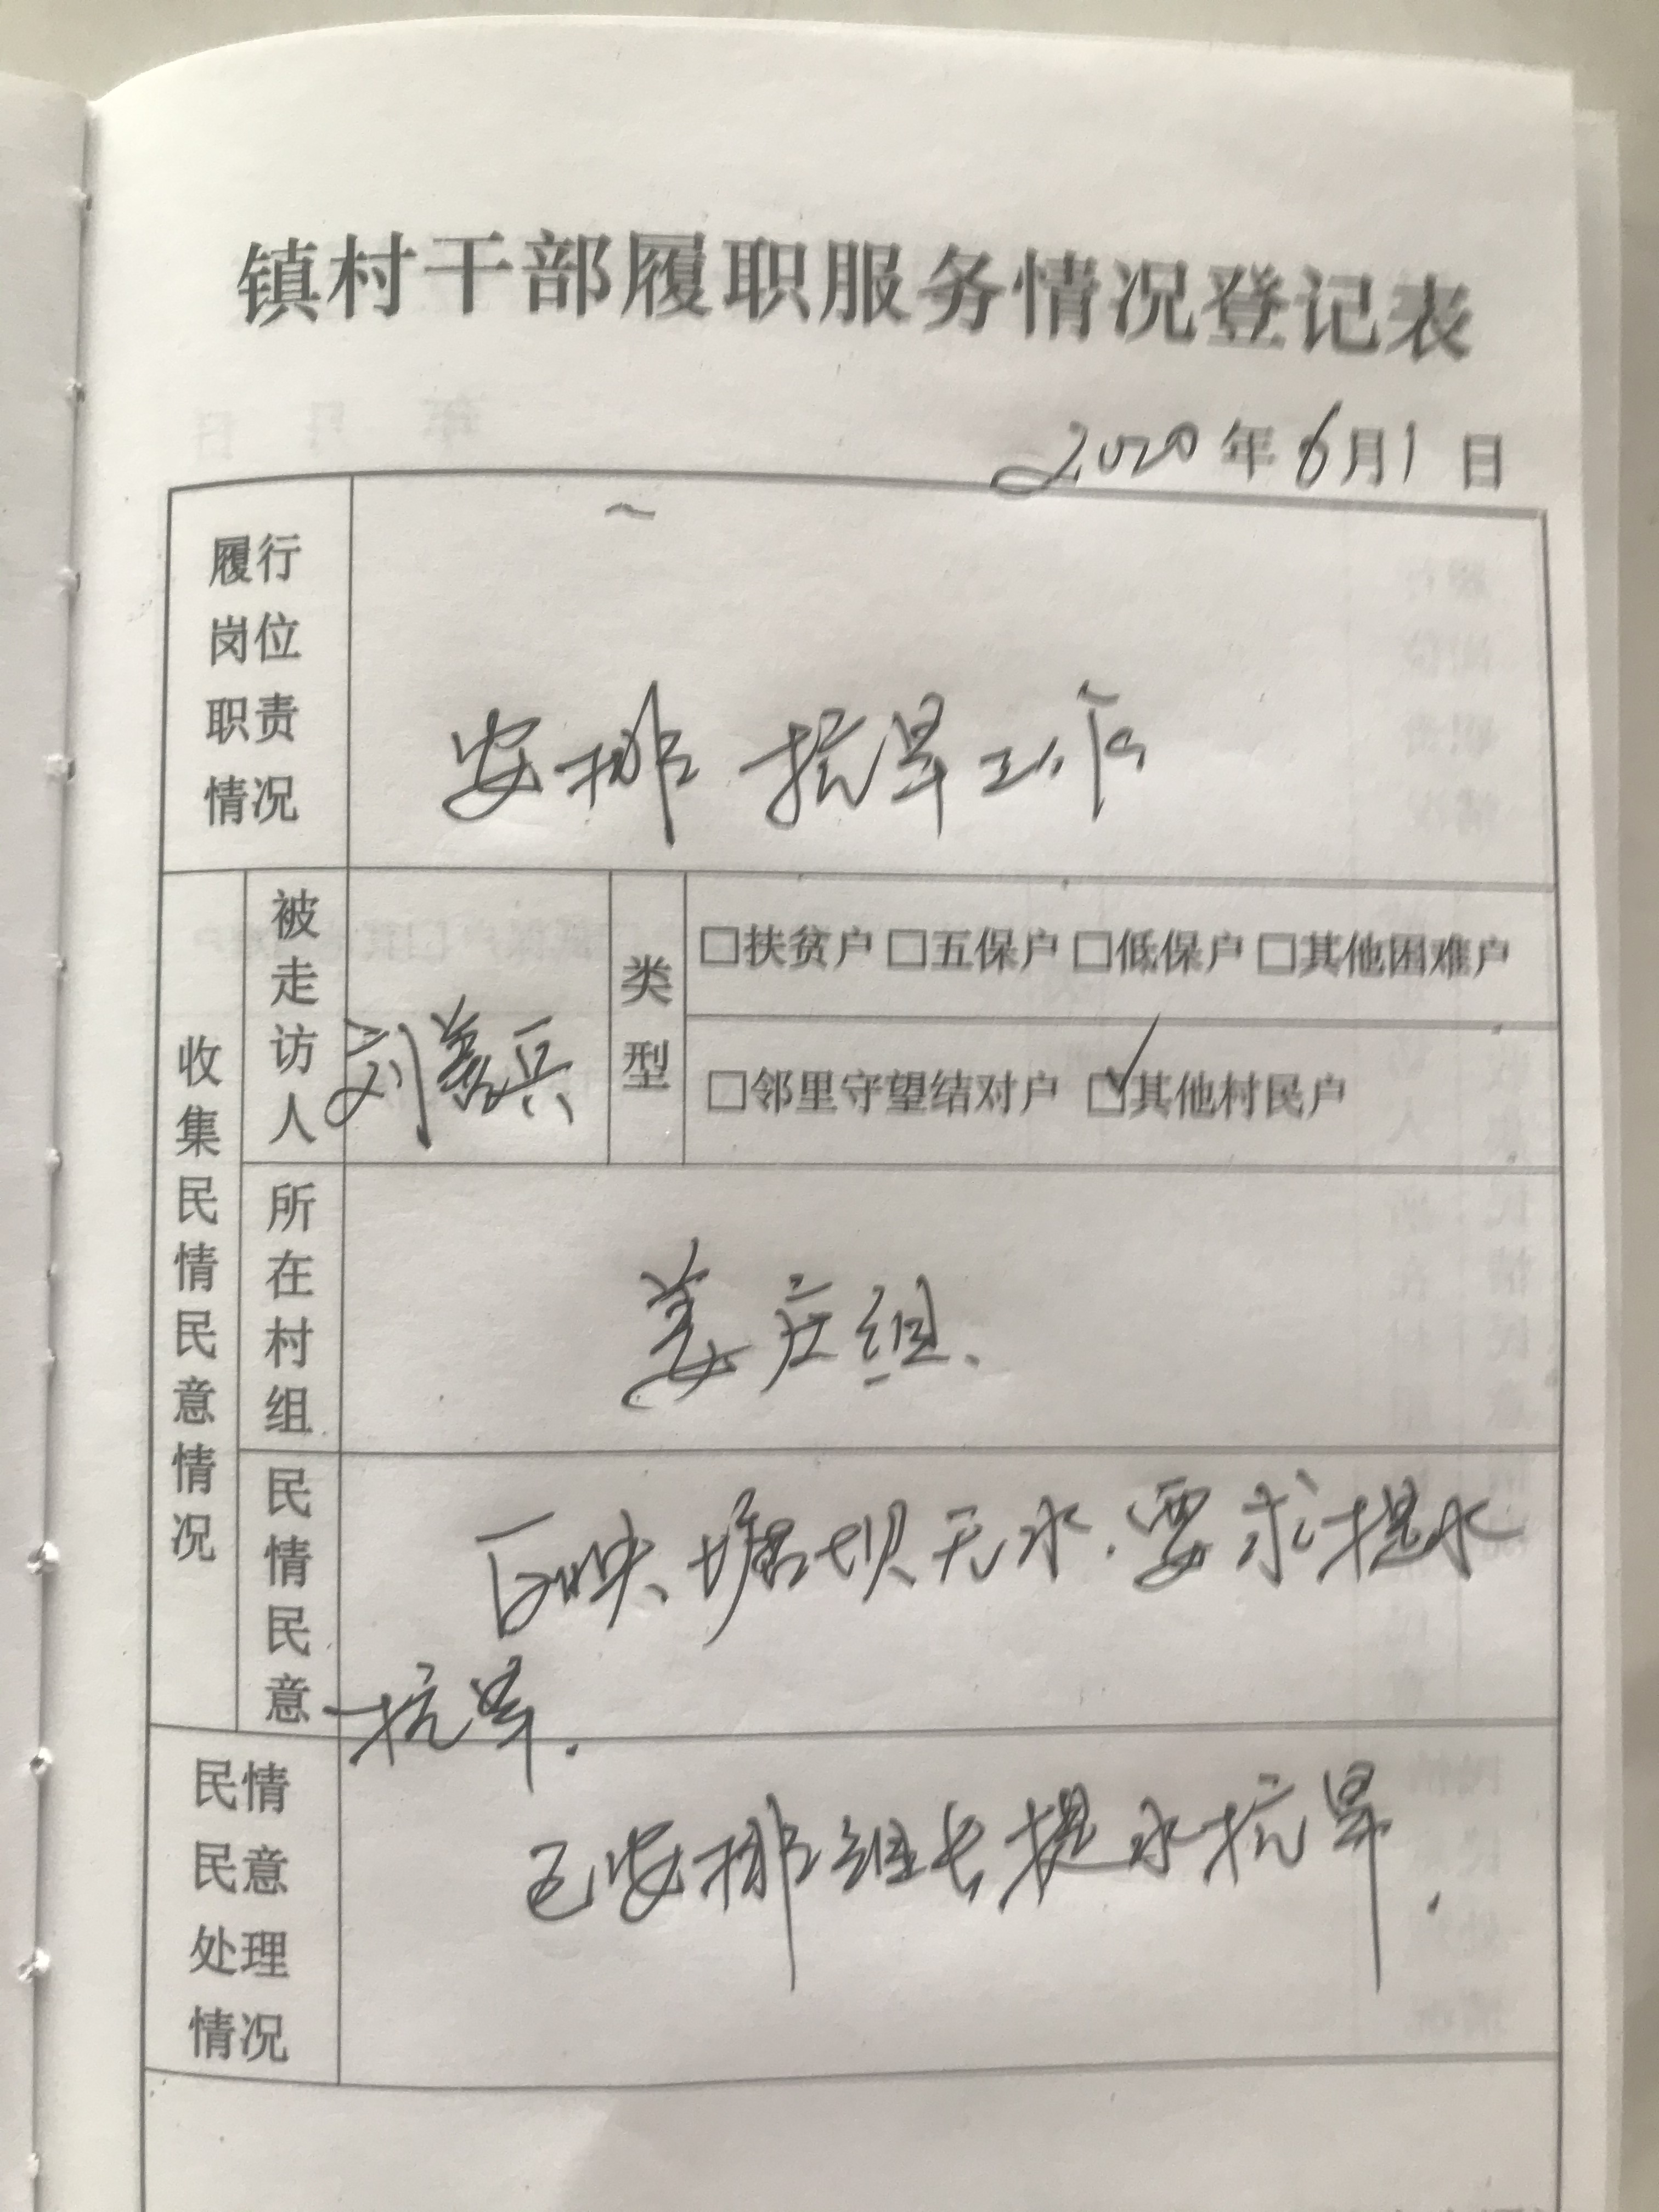 镇村干部履职服务情况登记表
2020年6月1日
履行岗位职责情况
安排抗旱工作
收集民情民意情况
被走访人
刘善兵
类型
□扶贫户 □五保户 □低保户 □其他困难户
□邻里守望结对户 ☑其他村民户
所在村组
姜庄组
民情民意
反映塘坝无水.要求提水
抗旱.
民情民意处理情况
已安排组长提水抗旱.